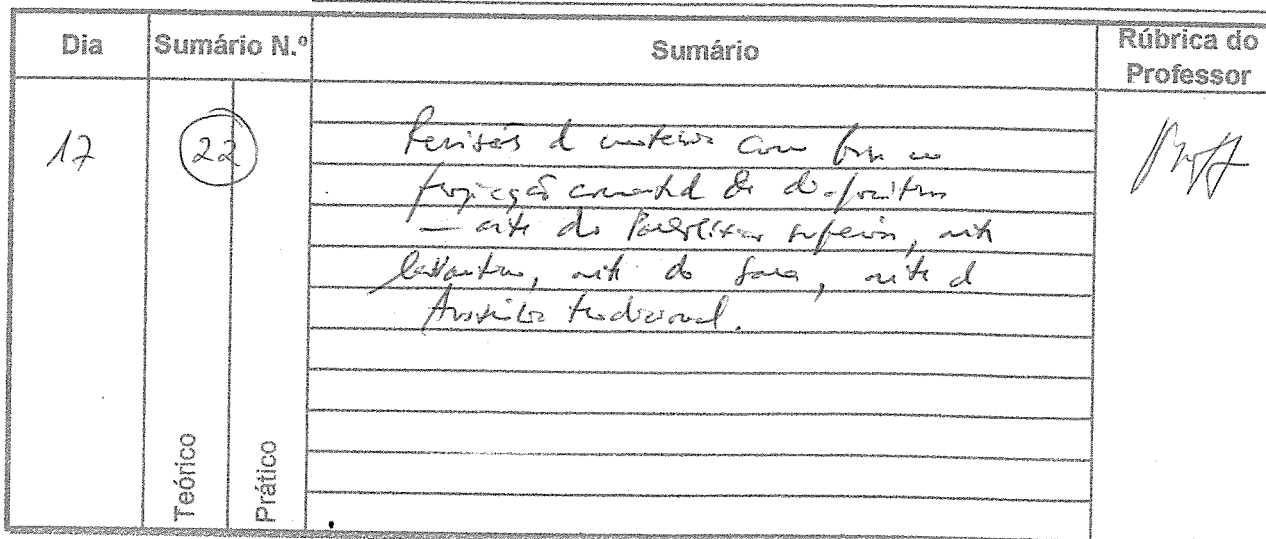 Dia Sumário N.º Sumário Rúbrica do Professor
17 22 Revisões da matéria com base na
projecção comentada de diapositivos
— arte do Paleolítico superior, arte
levantina, arte do Sara, arte da
Austrália tradicional.
Teórico Prático